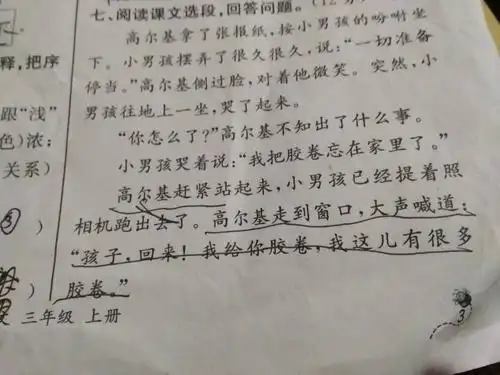 七、阅读课文选段,回答问题。(12分)
高尔基拿了张报纸,按小男孩的吩咐坐
下。小男孩摆弄了很久很久,说:“一切准备
停当。”高尔基侧过脸,对着他微笑。突然,小
男孩往地上一坐,哭了起来。
“你怎么了?”高尔基不知出了什么事。
小男孩哭着说:“我把胶卷忘在家里了。”
高尔基赶紧站起来,小男孩已经提着照
相机跑出去了。高尔基走到窗口,大声喊道:
“孩子,回来!我给你胶卷,我这儿有很多
胶卷。”
释,把序
跟“浅”
色)浓;
关系)
③ )
)
三年级 上册
3